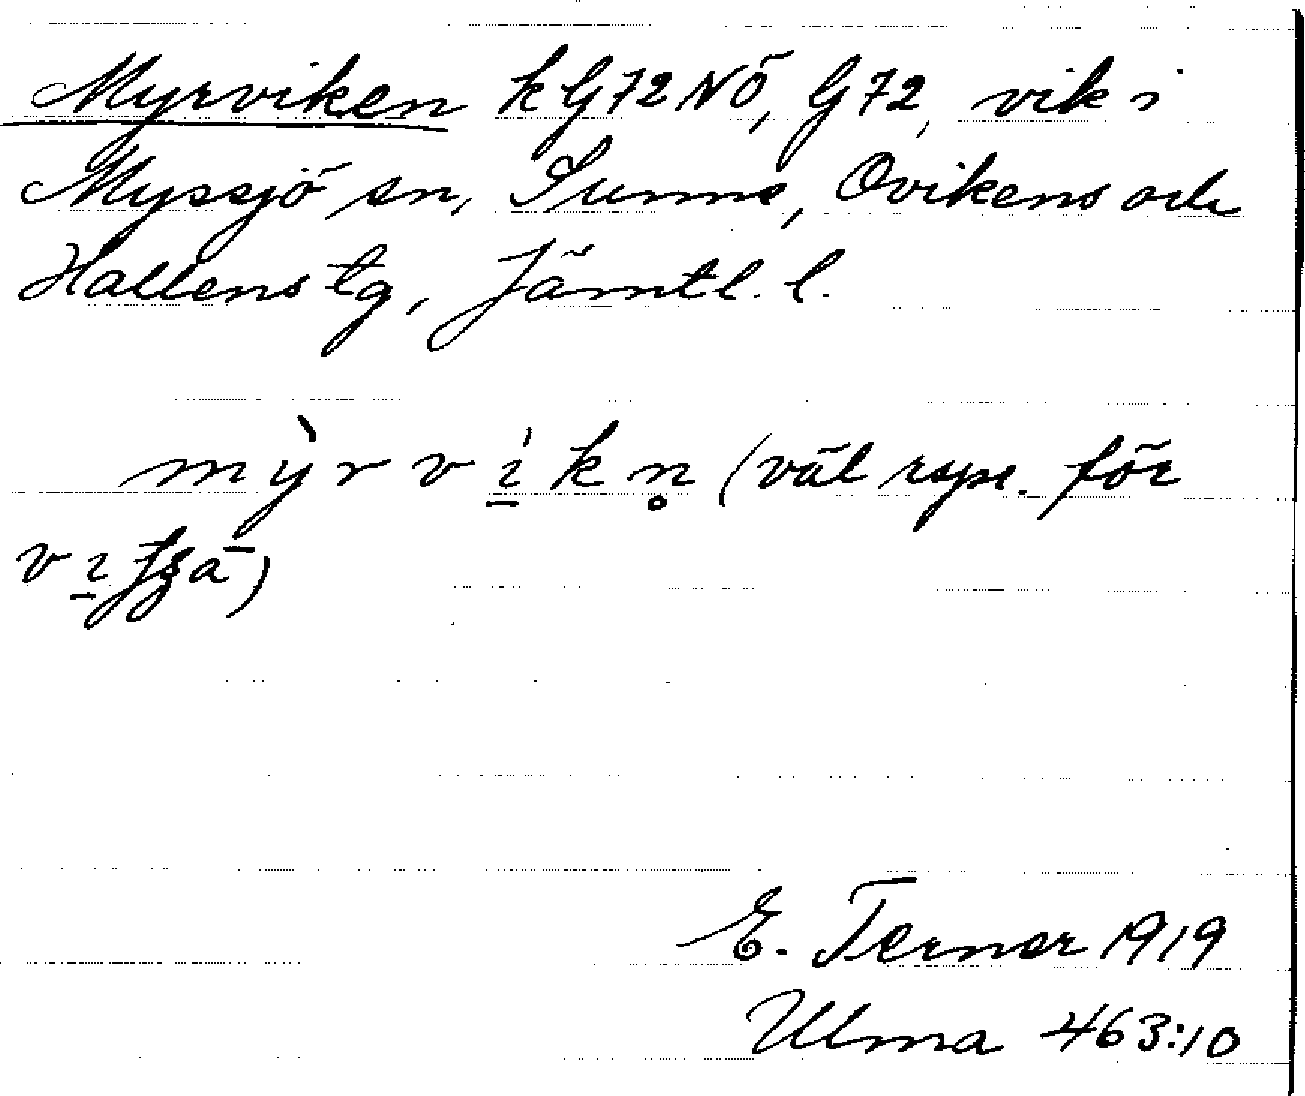 Myrviken k G72NÖ, G72, vik i
Myssjö sn, Sunne, Ovikens och
Hallens tg, Jämtl. l.
mỳrvi̠kn̥ (väl repr. för
vi̠)
E. Terner 1919
Ulma 463:10